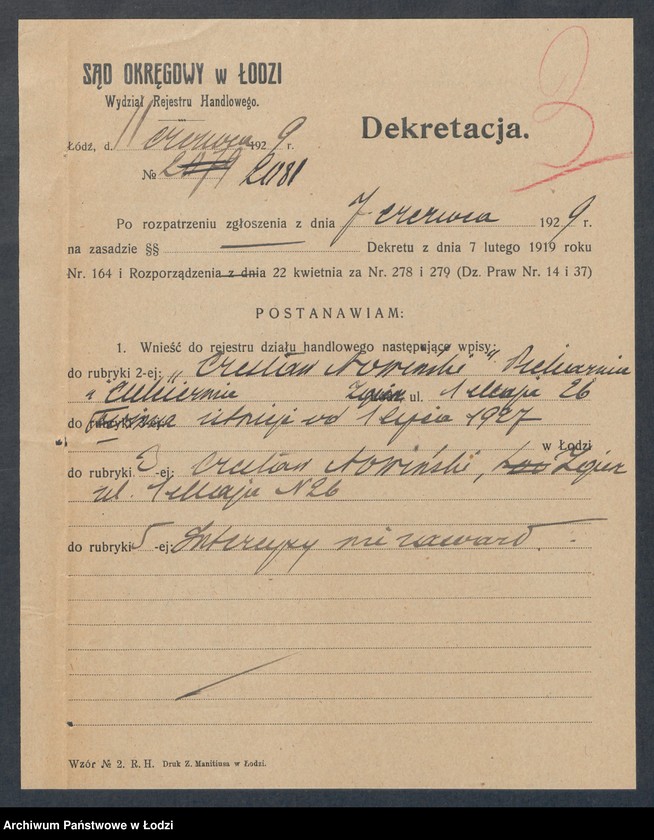 3
SĄD OKRĘGOWY w ŁODZI
Wydział Rejestru Handlowego.
Dekretacja.
Łódź, d. 11 czerwca 1929 r.
№ 2079 2081
Po rozpatrzeniu zgłoszenia z dnia 7 czerwca 1929 r.
na zasadzie §§ Dekretu z dnia 7 lutego 1919 roku
Nr. 164 i Rozporządzenia z dnia 22 kwietnia za Nr. 278 i 279 (Dz. Praw Nr. 14 i 37)
POSTANAWIAM:
1. Wnieść do rejestru działu handlowego następujące wpisy:
do rubryki 2-ej: „Czesław Nowiński" Piekarnia
i Cukiernia Zgierz, ul. 1 Maja 26
do rubryki istnieje od 1 lipca 1927
w Łodzi
do rubryki 3-ej: Czesław Nowiński, Zgierz
ul. 1 Maja N 26
do rubryki 5-ej: Intercyzy nie zawarł.
Wzór № 2. R. H. Druk Z. Manitiusa w Łodzi.
Archiwum Państwowe w Łodzi